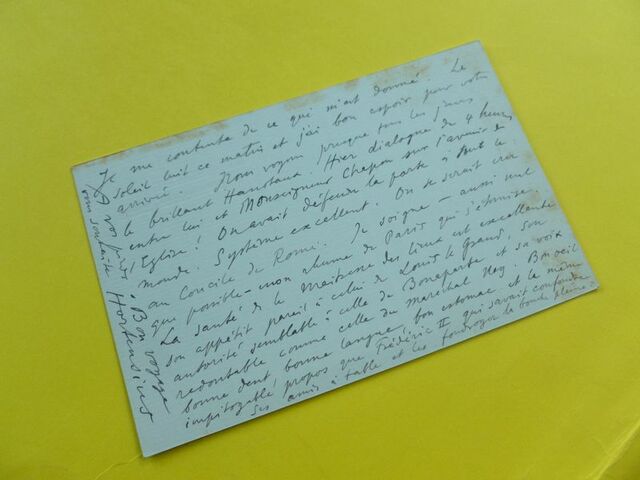 Je me contente de ce qui m'est donné. Le
soleil luit ce matin et j'ai bon espoir pour votre
arrivée. Nous voyons presque tous les jours
le brillant Hanotaux. Hier dialogue de 4 heures
entre lui et Monseigneur Chapon sur l'avenir de
l'Eglise! On avait défendu la porte à tout le
monde. Système excellent. On se serait cru
au Concile de Rome. Je soigne - aussi mal
que possible - mon rhume de Paris qui s'éternise.
La santé de la Maitresse des lieux est excellente
son appétit pareil à celui de Louis le Grand, son
autorité semblable à celle de Bonaparte et sa voix
redoutable comme celle du maréchal Ney. Bon oeil
bonne dent bonne langue, bon estomac et le même
impitoyable propos que Frédéric II qui savait confondre
ses amis à table et les foudroyer la bouche pleine.
A vos pieds. Bon voyage
vous souhaite Hortensius